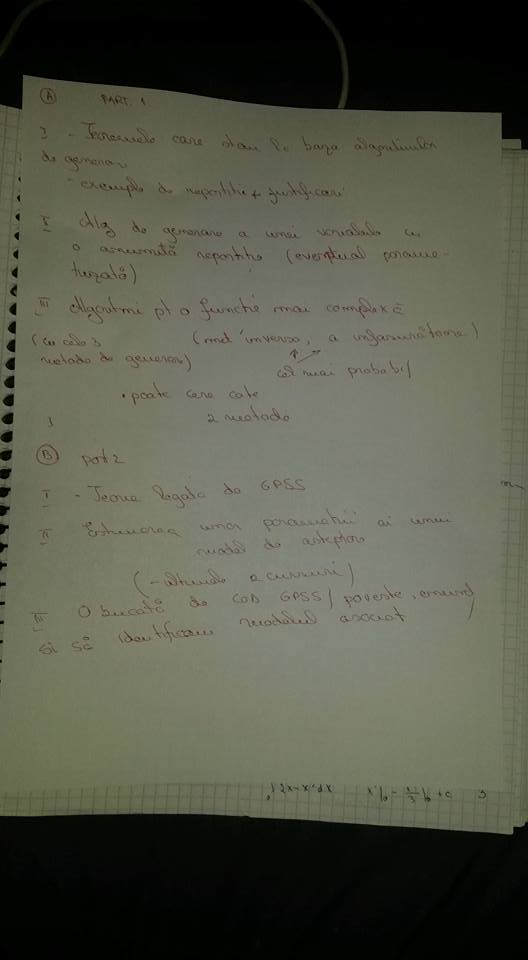 A PART. 1
I - Teoremele care stau la baza algoritmilor
de generare
- exemple de repartitii + justificari
II Alg de generare a unei variabile cu
o anumită repartitie (eventual parame-
trizată)
III Algoritmi pt o functie mai complexă
(cu cele 3 (met inverse, a infasurătoarei)
metode de generare) cel mai probabil
• poate cere cate
2 metode
I
B part 2
I - Teorie legata de GPSS
II Estimarea unor parametrii ai unui
model de asteptare
(- ultimele 2 cursuri)
III O bucată de COD GPSS / poveste, enunt
si să identificam modelul asociat